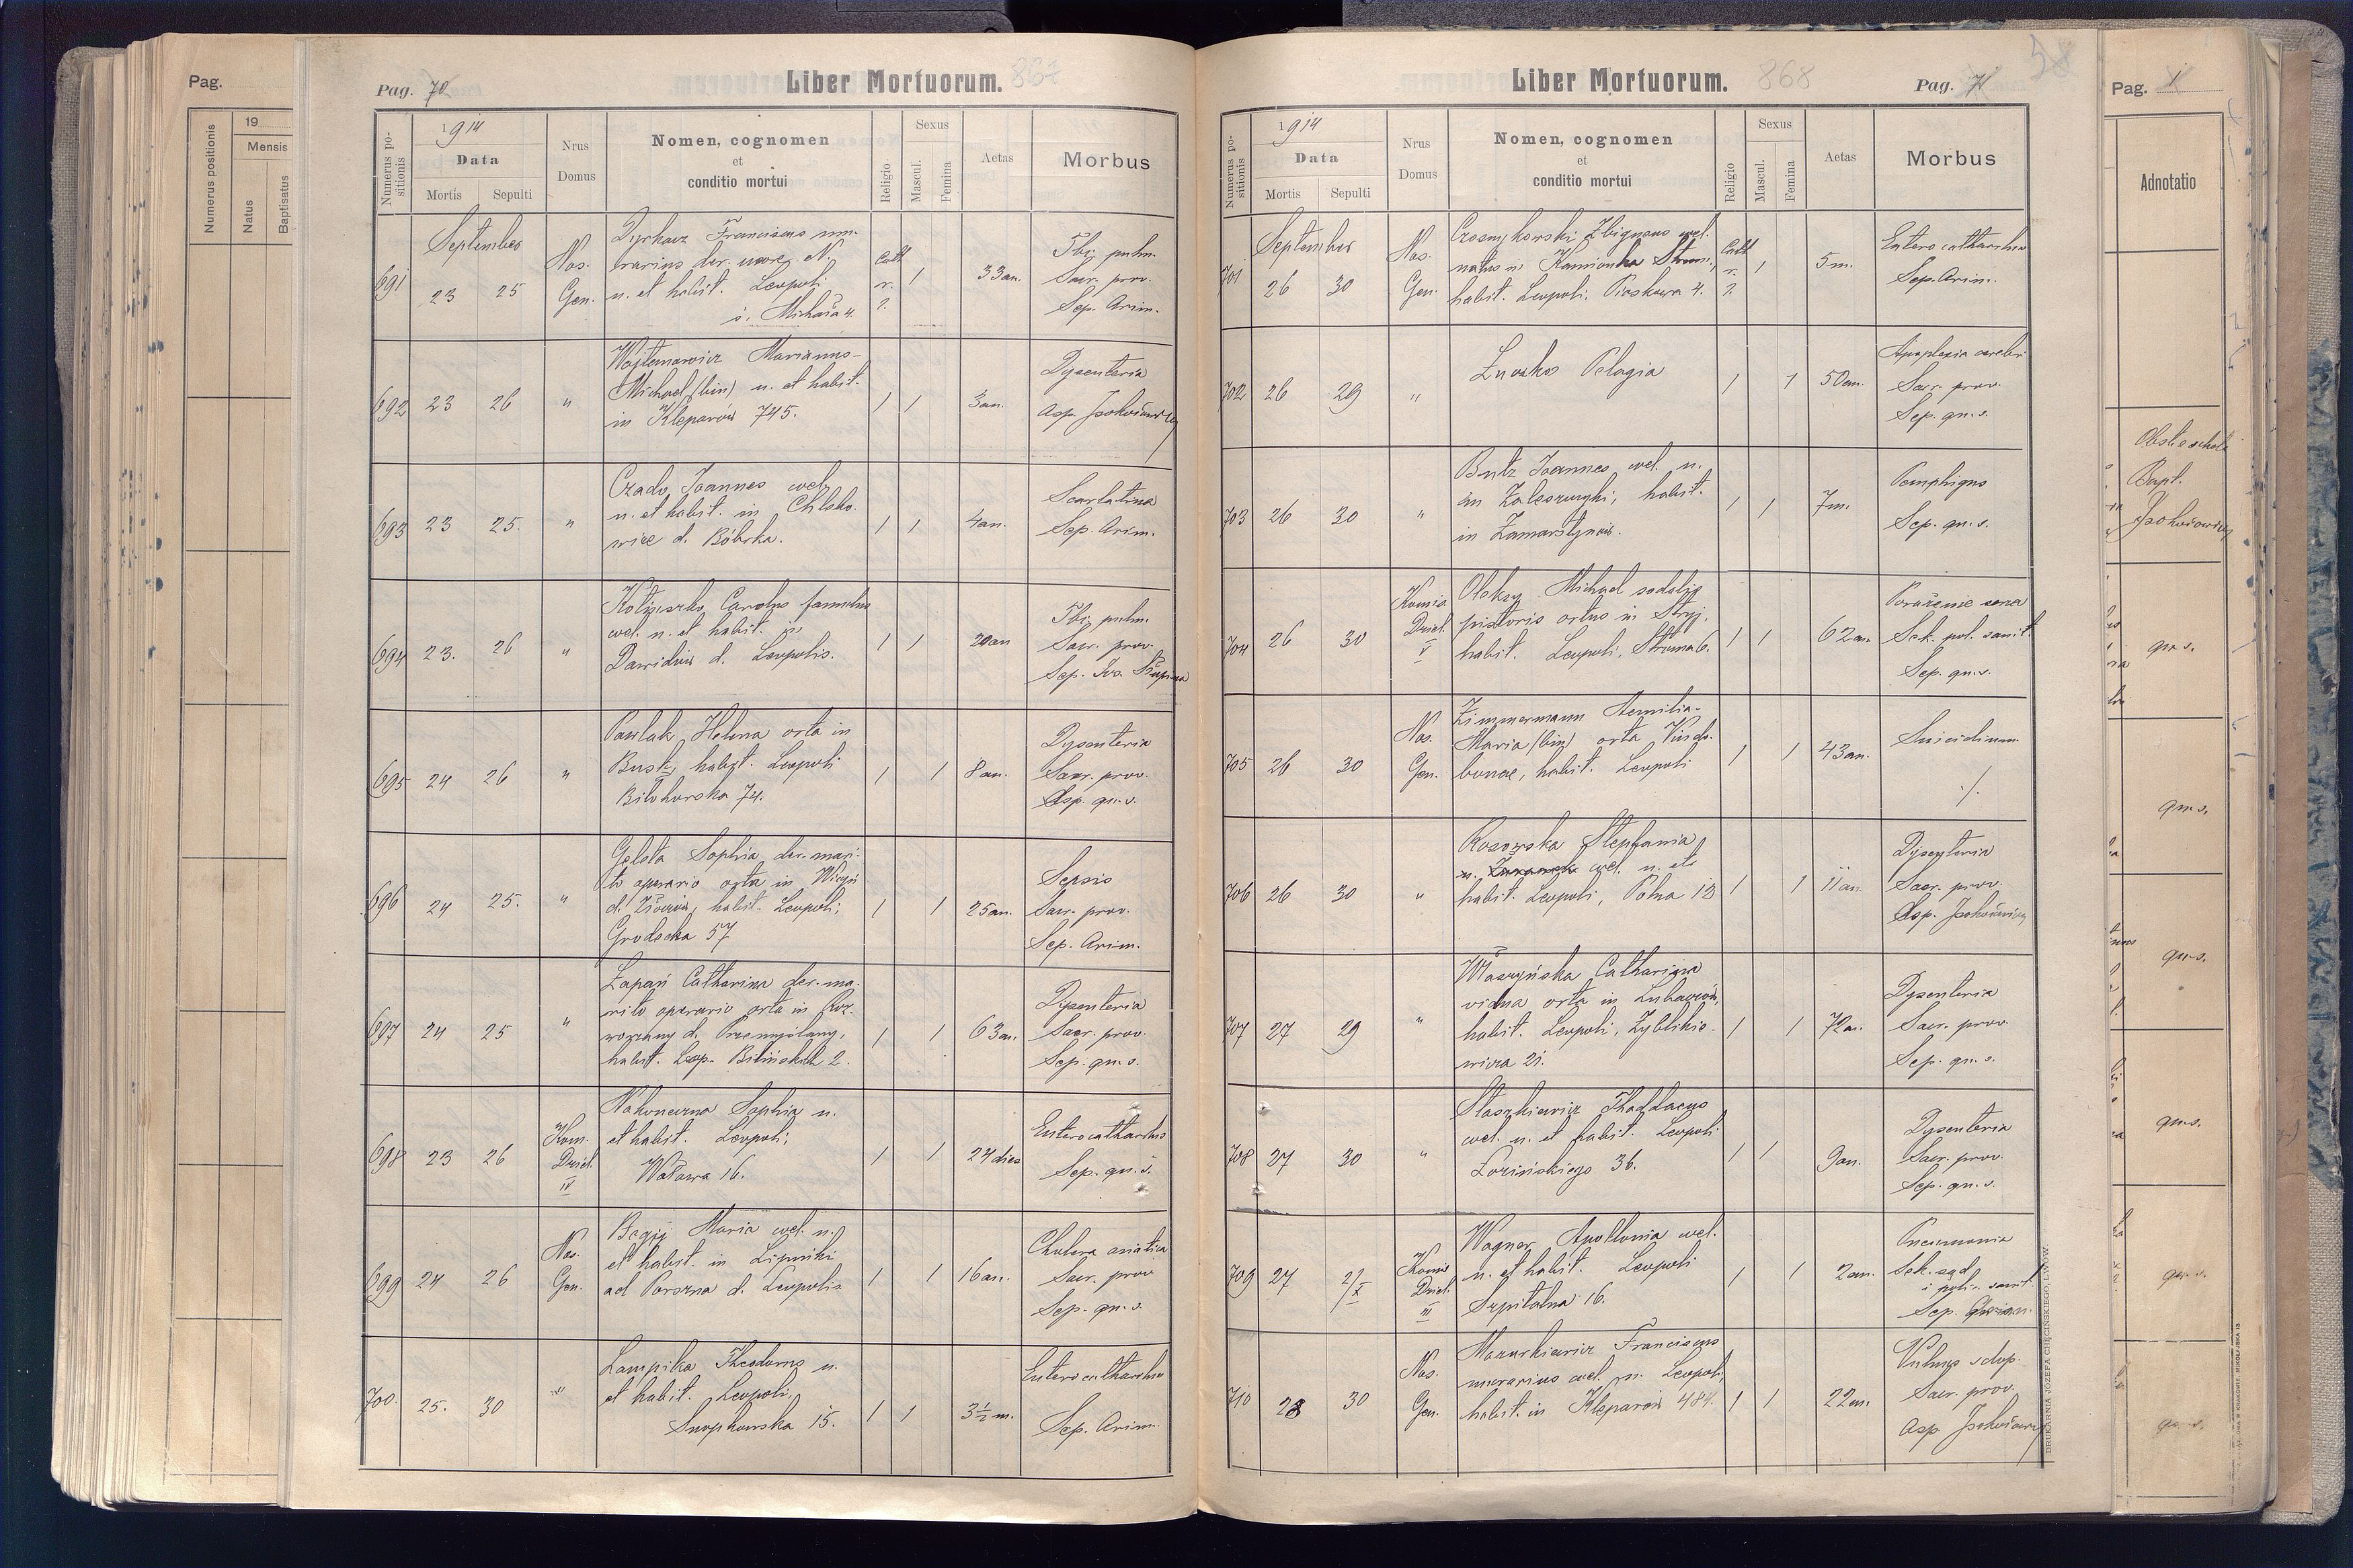 Pag.
Numerus positionis
19
Mensis
Natus
Baptisatus
Pag. 70
Liber Mortuorum. 867
Numerus positionis
1914
Data
Mortis Sepulti
Nrus Domus
Nomen, cognomen
et
conditio mortui
Religio
Sexus
Mascul.
Femina
Aetas
Morbus
September
691 23 25
Nos.
Gen.
Franciscus mu-
rarius der. uxore N.
n. et habit. Leopoli
s. Michała 4.
Cath
r.
l.
1
33 an.
Tbc. pulm.
Sacr. prov.
Sep. Arim.
692 23 26 "
Marianus-
Michael (bin) n. et habit.
in Kleparów 745.
1 1
3 an.
Dysenteria
Asp.
693 23 25. "
Czado Joannes cael.
n. et habit. in Chlebo-
wice d. Bóbrka.
1 1
4 an.
Scarlatina
Sep. Arim.
694 23. 26 "
Carolus famulus
cael. n. et habit. in
Dawidów d. Leopolis.
1 1
20 an
Tbc. pulm.
Sacr. prov.
Sep.
695 24 26 "
Pawlak Helena orta in
Busk, habit. Leopoli
Bilohorska 74.
1 1
8 an.
Dysenteria
Sacr. prov.
Asp. qu. s.
696 24 25. "
Sophia der. mari-
to operario orta in
habit. Leopoli,
Grodecka 57
1 1
25 an.
Sepsis
Sacr. prov.
Sep. Arim.
697 24 25 "
Łapań Catharina der. ma-
rito operario orta in
d. Przemyślany,
habit. Leop. Bilińskich 2.
1 1
63 an.
Dysenteria
Sacr. prov.
Sep. qu. s.
698 23 26
Kom.
Dziel.
IV
Nakoneczna Sophia n.
et habit. Leopoli,
Wałowa 16.
1 1
24 dies
Enterocatharrhus
Sep. qu. s.
699 24 26
Nos.
Gen.
Maria cael. n.
et habit. in Lipniki
ad Porszna d. Leopolis
1 1
16 an.
Cholera asiatica
Sacr. prov
Sep. qu. s.
700. 25. 30 "
Theodorus n.
et habit. Leopoli,
Snopkowska 15.
1 1
3½ m.
Enterocatharrhus
Sep. Arim.
Liber Mortuorum. 868
Pag. 71
Numerus positionis
1914
Data
Mortis Sepulti
Nrus Domus
Nomen, cognomen
et
conditio mortui
Religio
Sexus
Mascul.
Femina
Aetas
Morbus
September
701 26 30
Nos.
Gen.
Zbigneus cael.
natus in Kamionka Strum.,
habit. Leopoli, Piaskowa 4.
Cath
r.
l.
1
5 m.
Enterocatharrhus
Sep. Arim.
702 26 29 "
Pelagia
1 1
50 an.
Apoplexia cerebri
Sacr. prov.
Sep. qu. s.
703 26 30 "
Butz Joannes cael. n.
in Zaleszczyki, habit.
in Zamarstynów.
1 1
7 m.
Pemphigus
Sep. qu. s.
704 26 30
Komis.
Dziel.
V
Oleksy Michael sodalis
pistoris ortus in Stryj,
habit. Leopoli, Stroma 6.
1 1
62 an.
Porażenie serca
Sek. pol. sanit.
Sep. qu. s.
705 26 30
Nos.
Gen.
Zimmermann Aemilia-
Maria (bin) orta Vindo-
bonae, habit. Leopoli
1 1
43 an.
Suicidium
./.
706 26 30 "
Rosowska Stephania
cael. n. et
habit. Leopoli, Polna 13
1 1
11 an.
Dysenteria
Sacr. prov.
Asp.
707 27 29 "
Catharina
vidua orta in Lubaczów,
habit. Leopoli, Zyblikie-
wicza 21.
1 1
72 an.
Dysenteria
Sacr. prov.
Sep. qu. s.
708 27 30 "
Staszkiewicz Thaddaeus
cael. n. et habit. Leopoli
Łozińskiego 36.
1 1
9 an.
Dysenteria
Sacr. prov.
Sep. qu. s.
709 27 2/X
Komis
Dziel.
III
Wagner Apollonia cael.
n. et habit. Leopoli
Szpitalna 16.
1 1
2 an.
Pneumonia
Sek. sąd.
i polic. sanit.
Sep.
710 28 30
Nos.
Gen.
Mazurkiewicz Franciscus
murarius cael. n. Leopoli,
habit. in Kleparów 484.
1 1
22 an.
Vulnus sclop.
Sacr. prov.
Asp.
DRUKARNIA JÓZEFA CHĘCIŃSKIEGO, LWÓW.
Pag. 1
Adnotatio
Obstetr.
Bapt.
qu. s.
qu. s.
qu. s.
qu. s.
qu. s.
qu. s.